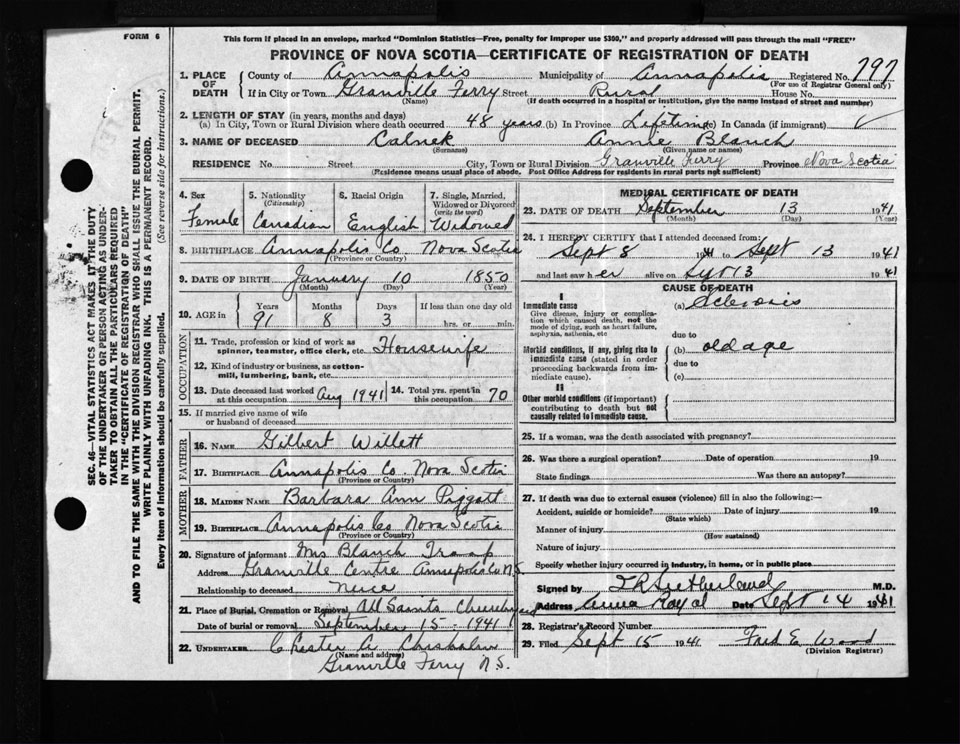 FORM 6
This form if placed in an envelope, marked "Dominion Statistics—Free, penalty for improper use $300," and properly addressed will pass through the mail "FREE"
PROVINCE OF NOVA SCOTIA—CERTIFICATE OF REGISTRATION OF DEATH
1. PLACE OF DEATH County of Annapolis Municipality of Annapolis Registered No. 797
(For use of Registrar General only)
If in City or Town Granville Ferry Street Rural House No.
(Name) (If death occurred in a hospital or institution, give the name instead of street and number)
2. LENGTH OF STAY (in years, months and days)
(a) In City, Town or Rural Division where death occurred 48 years (b) In Province Lifetime (c) In Canada (if immigrant)
3. NAME OF DECEASED Calnek Annie Blanch
(Surname) (Given name or names)
RESIDENCE No. Street City, Town or Rural Division Granville Ferry Province Nova Scotia
(Residence means usual place of abode. Post Office Address for residents in rural parts not sufficient)
SEC. 46—VITAL STATISTICS ACT MAKES IT THE DUTY
OF THE UNDERTAKER OR PERSON ACTING AS UNDER-
TAKER TO OBTAIN ALL THE PARTICULARS REQUIRED
IN THE "CERTIFICATE OF REGISTRATION OF DEATH"
AND TO FILE THE SAME WITH THE DIVISION REGISTRAR WHO SHALL ISSUE THE BURIAL PERMIT.
WRITE PLAINLY WITH UNFADING INK. THIS IS A PERMANENT RECORD.
Every item of information should be carefully supplied. (See reverse side for instructions.)
4. Sex 5. Nationality 6. Racial Origin 7. Single, Married,
(Citizenship) Widowed or Divorced
(write the word)
Female Canadian English Widowed
8. BIRTHPLACE Annapolis Co. Nova Scotia
(Province or Country)
9. DATE OF BIRTH January 10 1850
(Month) (Day) (Year)
10. AGE in Years Months Days If less than one day old
91 8 3 hrs. or min.
OCCUPATION
11. Trade, profession or kind of work as
spinner, teamster, office clerk, etc. Housewife
12. Kind of industry or business, as cotton-
mill, lumbering, bank, etc.
13. Date deceased last worked at this occupation Aug 1941 14. Total yrs. spent in this occupation 70
15. If married give name of wife
or husband of deceased
FATHER
16. NAME Gilbert Willett
17. BIRTHPLACE Annapolis Co Nova Scotia
(Province or Country)
MOTHER
18. MAIDEN NAME Barbara Ann Piggott
19. BIRTHPLACE Annapolis Co Nova Scotia
(Province or Country)
20. Signature of informant Mrs Blanch
Address Granville Centre Annapolis Co N.S.
Relationship to deceased niece
21. Place of Burial, Cremation or Removal All Saints Churchyard
Date of burial or removal September 15 - 1941
22. UNDERTAKER Chester A Chisholm
(Name and address)
Granville Ferry N.S.
MEDICAL CERTIFICATE OF DEATH
23. DATE OF DEATH September 13 1941
(Month) (Day) (Year)
24. I HEREBY CERTIFY that I attended deceased from:
Sept 8 1941 to Sept 13 1941
and last saw her alive on Sept 13 1941
CAUSE OF DEATH
I
Immediate cause (a) Sclerosis
Give disease, injury or complica-
tion which caused death, not the
mode of dying, such as heart failure,
asphyxia, asthenia, etc
due to
Morbid conditions, if any, giving rise to (b) old age
immediate cause (stated in order due to
proceeding backwards from im-
mediate cause). (c)
II
Other morbid conditions (if important)
contributing to death but not
causally related to immediate cause.
25. If a woman, was the death associated with pregnancy?
26. Was there a surgical operation? Date of operation 19
State findings Was there an autopsy?
27. If death was due to external causes (violence) fill in also the following:—
Accident, suicide or homicide? Date of injury 19
(State which)
Manner of injury
(How sustained)
Nature of injury
Specify whether injury occurred in industry, in home, or in public place
Signed by Sutherland M.D.
Address Anna Royal Date Sept 14 1941
28. Registrar's Record Number
29. Filed Sept 15 1941 Fred E. Wood
(Division Registrar)